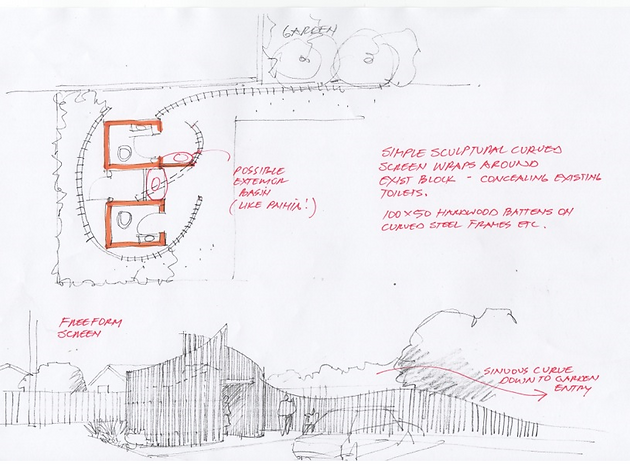 GARDEN
SIMPLE SCULPTURAL CURVED
SCREEN WRAPS AROUND
EXIST BLOCK - CONCEALING EXISTING
TOILETS.
100x50 HARDWOOD BATTENS ON
CURVED STEEL FRAMES ETC.
POSSIBLE
EXTERIOR
BASIN
(LIKE PAIHIA!)
FREEFORM
SCREEN
SINUOUS CURVE
DOWN TO GARDEN
ENTRY